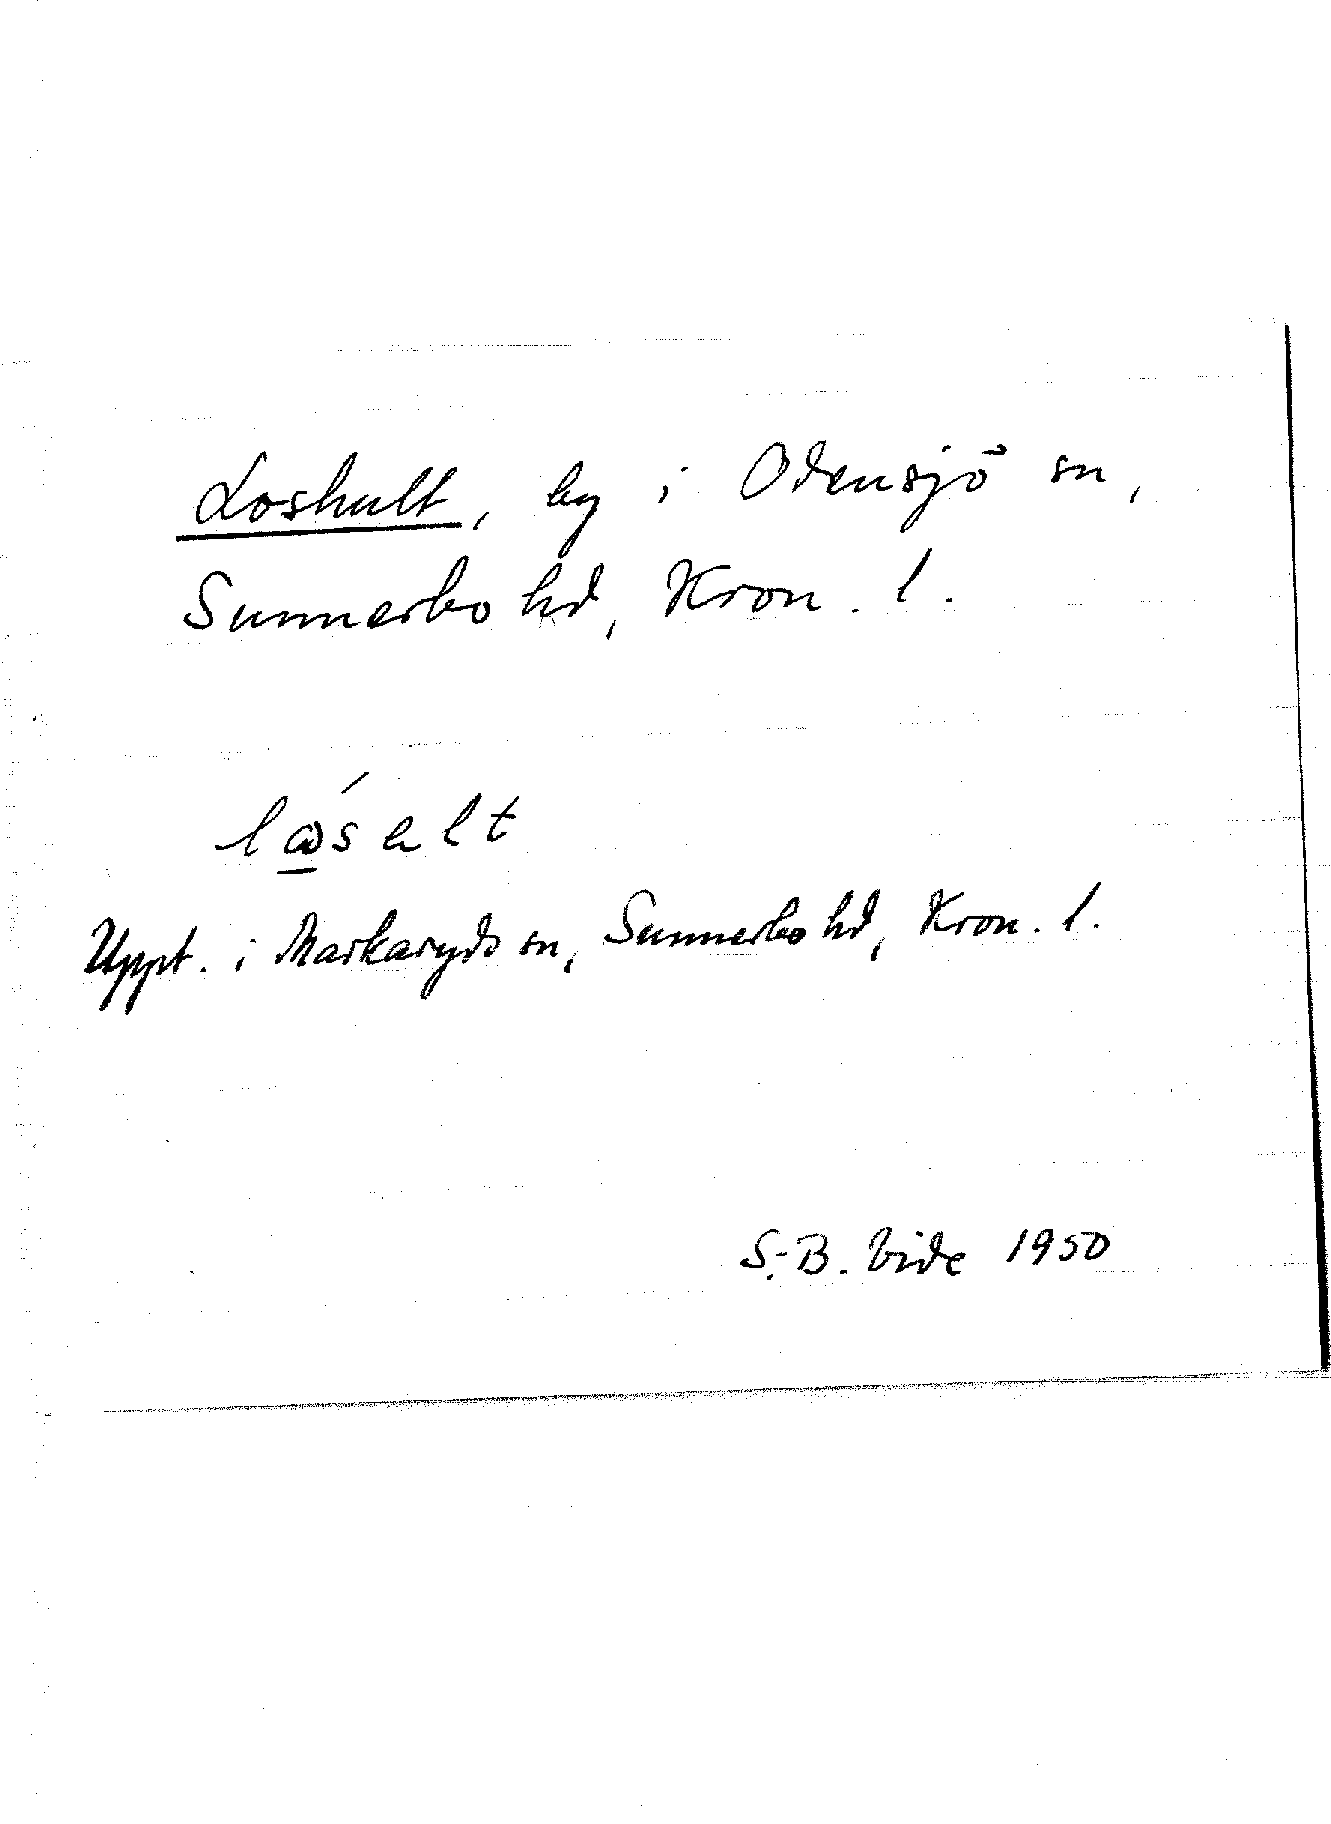 Loshult, by i Odensjö sn,
Sunnerbo hd, Kron. l.
Uppt. i Markaryds sn, Sunnerbo hd, Kron. l.
S.-B. Vide 1950